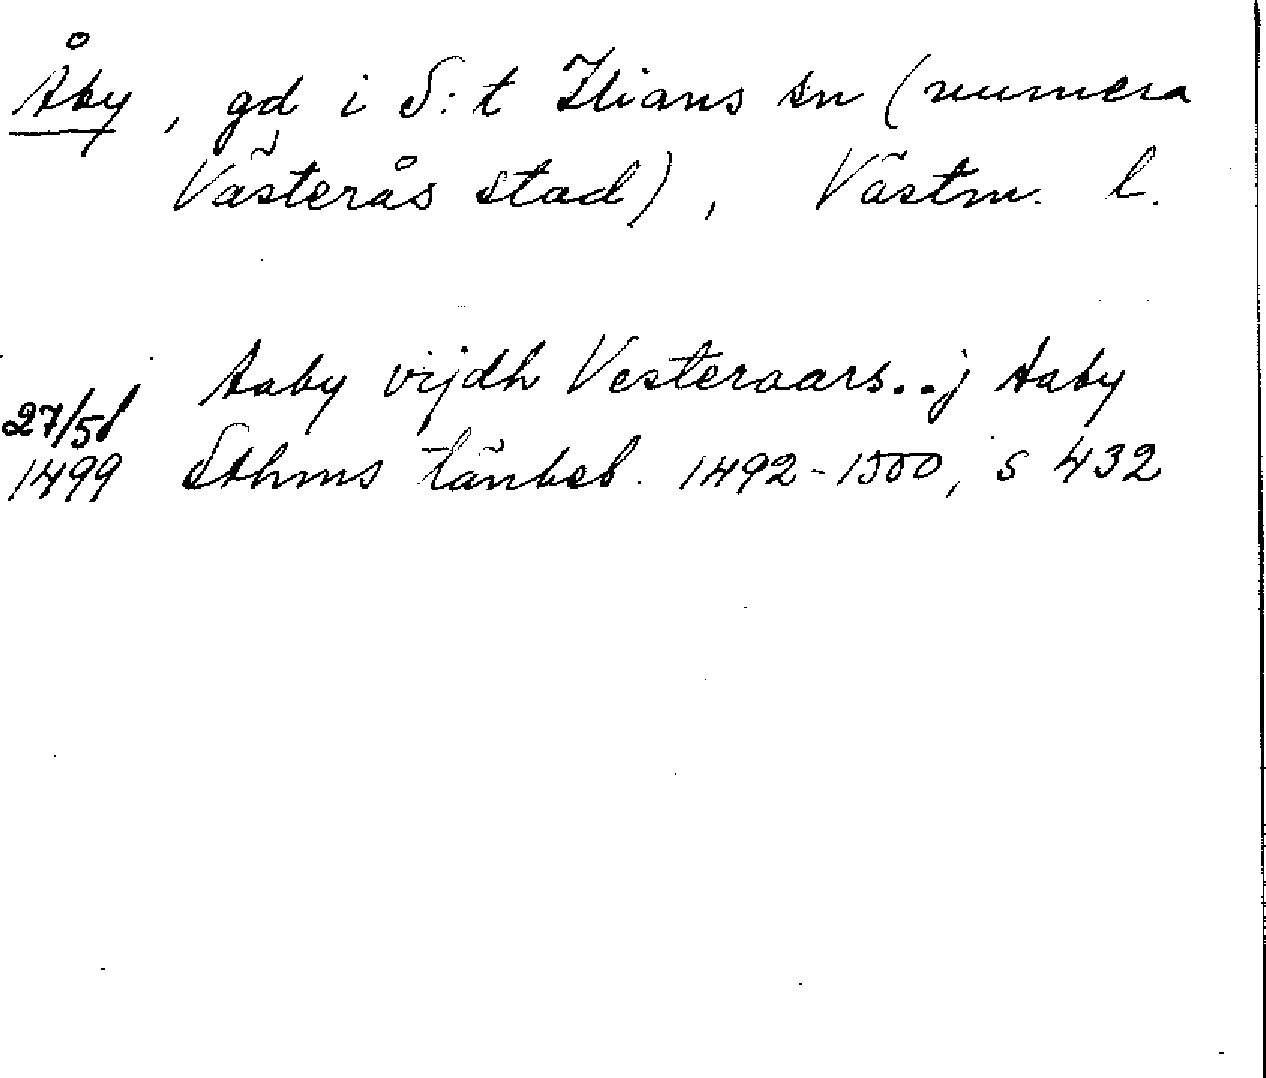 Åby, gd i S:t Ilians sn (numera
Västerås stad), Västm. l.
Aaby vijdh Vesteraars..j Aaby
27/5
1499 Sthms tänkeb. 1492-1500, s 432